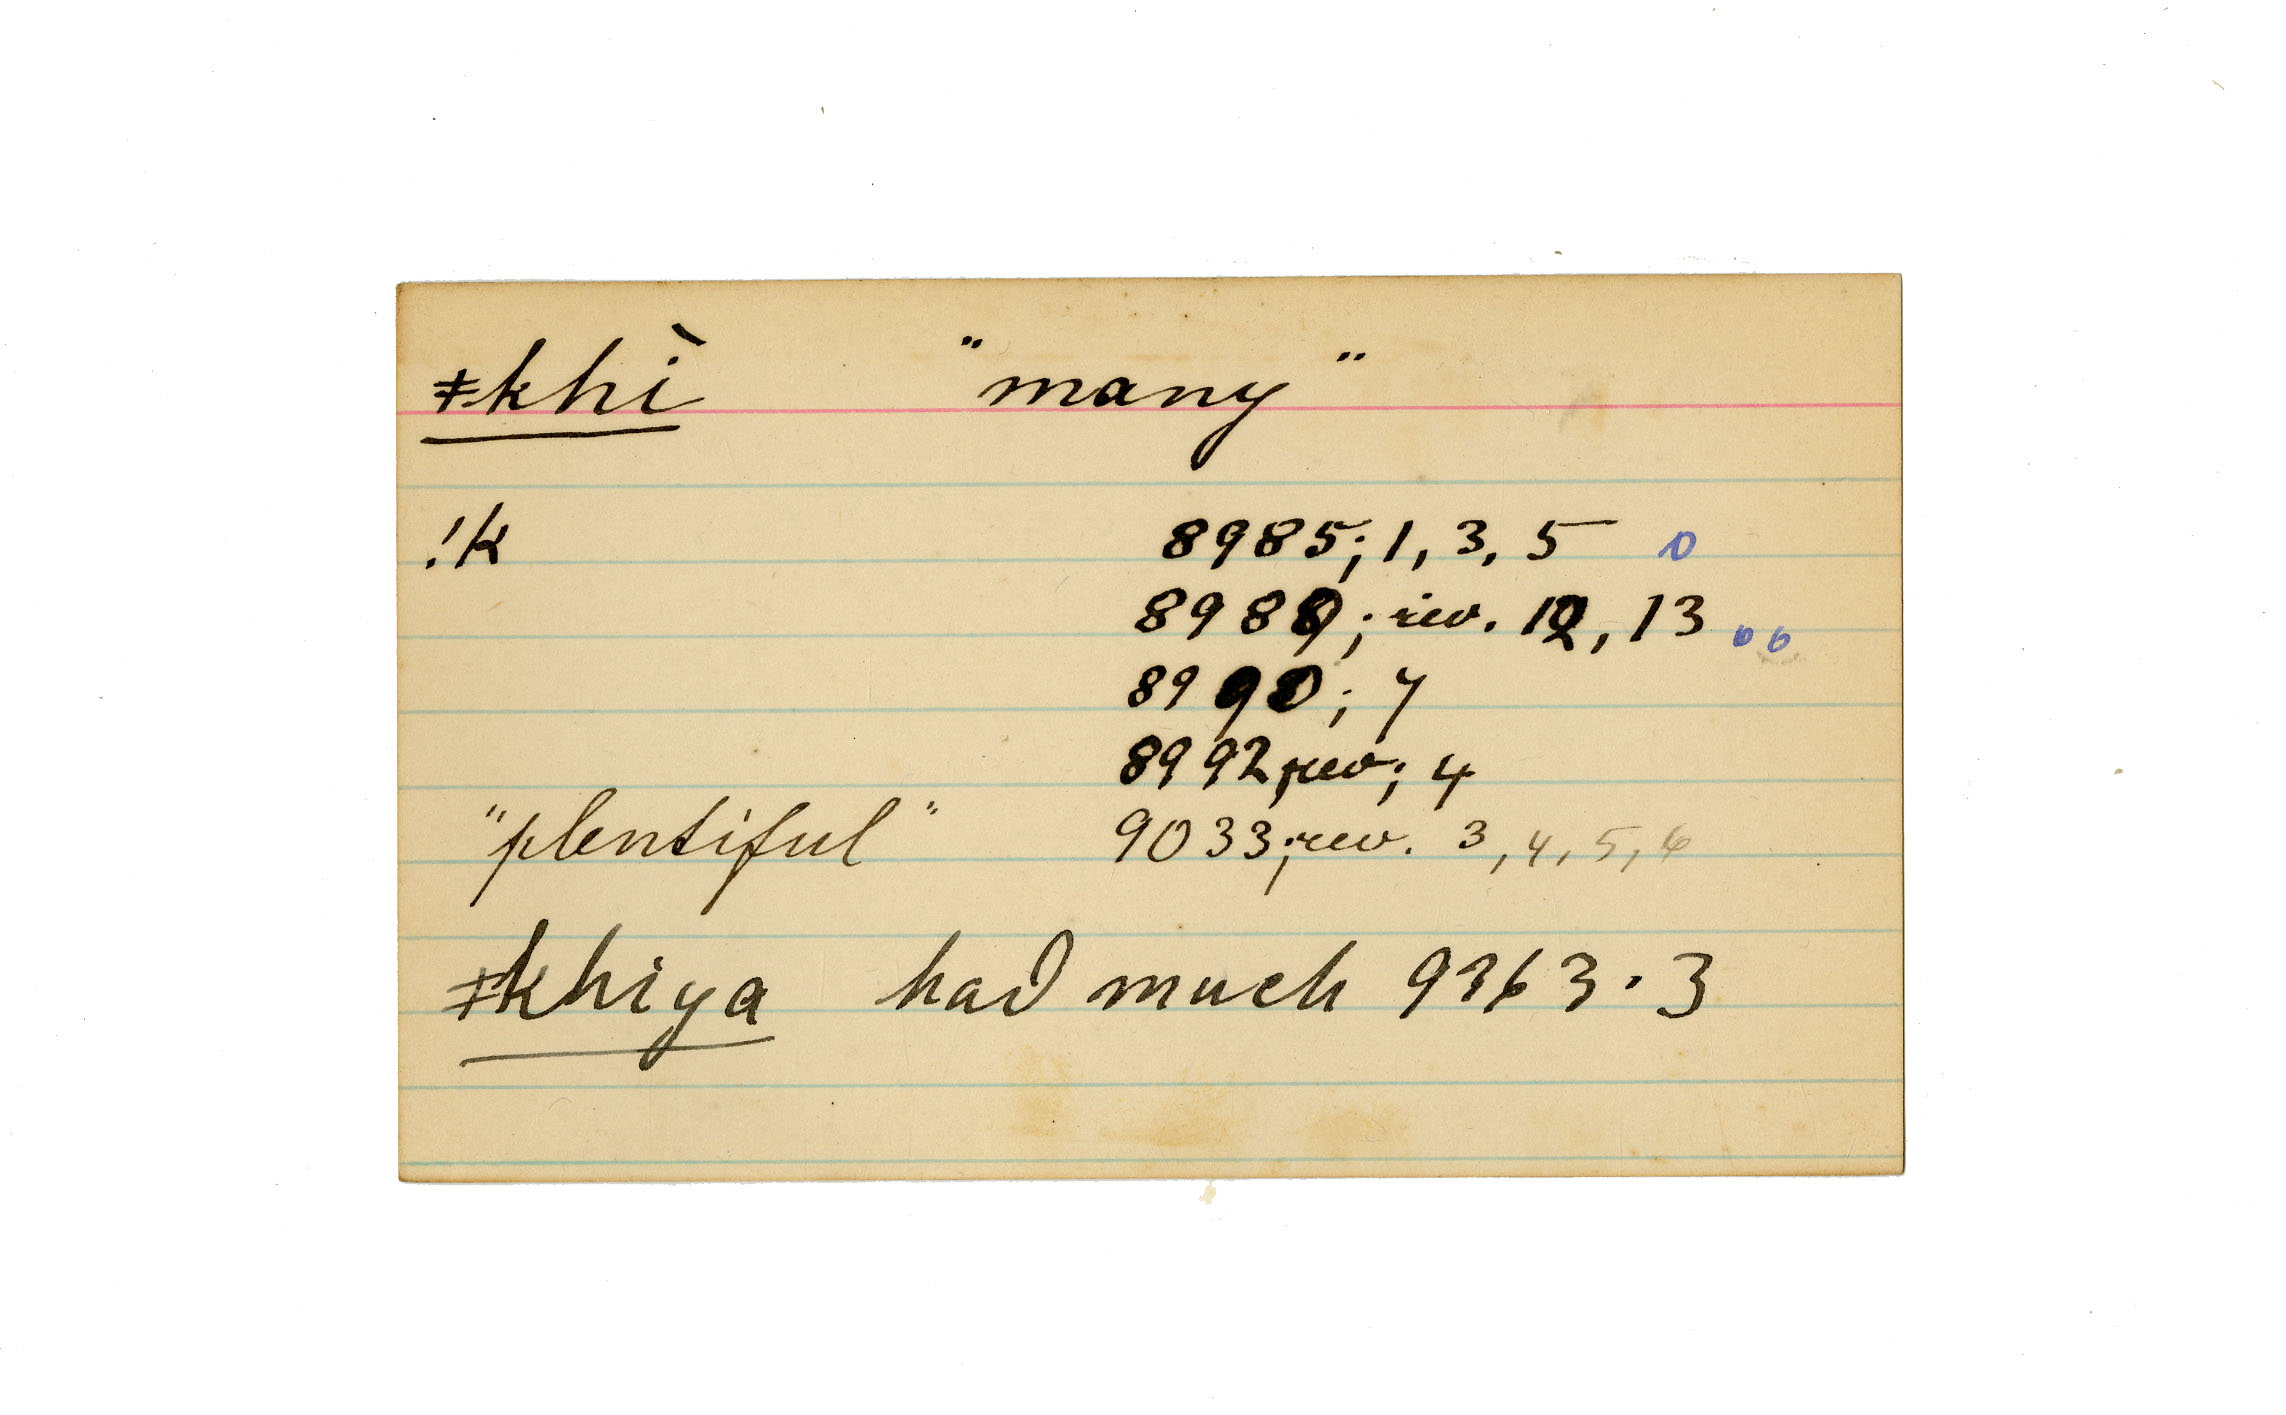 ǂkhì "many"
!k 8985; 1, 3, 5 0
8989; rev. 12, 13 0 0
8990; 7
8992, rev; 4
"plentiful" 9033; rev. 3, 4, 5, 6
ǂkhiya had much 9363. 3